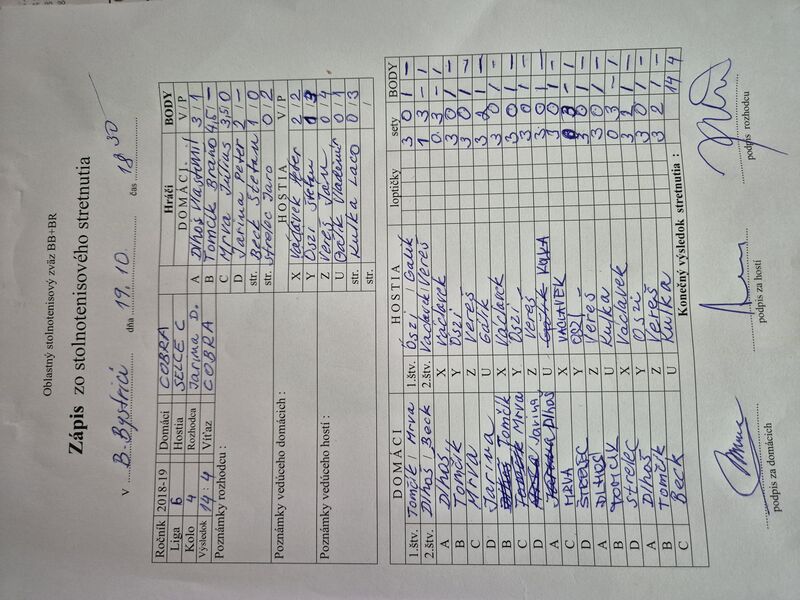 Oblastný stolnotenisový zväz BB+BR
Zápis zo stolnotenisového stretnutia
v B. Bystrici dňa 19.10. čas 18 30
Ročník 2018-19 Domáci COBRA
Liga 6 Hostia SELCE C
Kolo 4 Rozhodca Jarina D.
Výsledok 14:4 Víťaz COBRA
Poznámky rozhodcu :
Poznámky vedúceho domácich :
Poznámky vedúceho hostí :
Hráči BODY
DOMÁCI V/P
A Dlhoš Vlastimil 3 1
B Tomčík Braňo 4,5 –
C Mrva Július 3,5 0
D Jarina Peter 2 –
str. Beck Štefan 1 0
str. Strelec Jaro 0 2
HOSTIA V/P
X Václavek Peter 2 2
Y Oszi Štefan 1 3
Z Vereš Jan 0 4
U Galik Vladimír 0 1
str. Kulka Laco 0 3
str. /
DOMÁCI HOSTIA loptičky sety BODY
1.štv. Tomčík / Mrva 1.štv. Oszi / Galik 3 0 1 –
2.štv. Dlhoš / Beck 2.štv. Vaclavek Vereš 1 3 – 1
A Dlhoš X Václavek 0 3 – 1
B Tomčík Y Oszi 3 0 1 –
C Mrva Z Vereš 3 0 1 –
D Jarina U Galik 3 0 1 –
B Tomčík X Vaclavek 3 0 1 –
C Mrva Y Oszi 3 0 1 –
D Jarina Z Vereš 3 0 1 –
A Dlhoš U Kulka 3 0 1 –
C MRVA X VACLAVEK
D Strelec Y OSZI
A DLHOŠ Z Vereš 3 0 1 –
B Tomčík U Kulka 3 0 1 –
D Strelec X Vaclavek 0 3 – 1
A Dlhoš Y Oszi
B Tomčík Z Vereš 3 0 1 –
C Beck U Kulka 3 2 1 –
Konečný výsledok stretnutia : 14 4
podpis za domácich
podpis za hostí
podpis rozhodcu